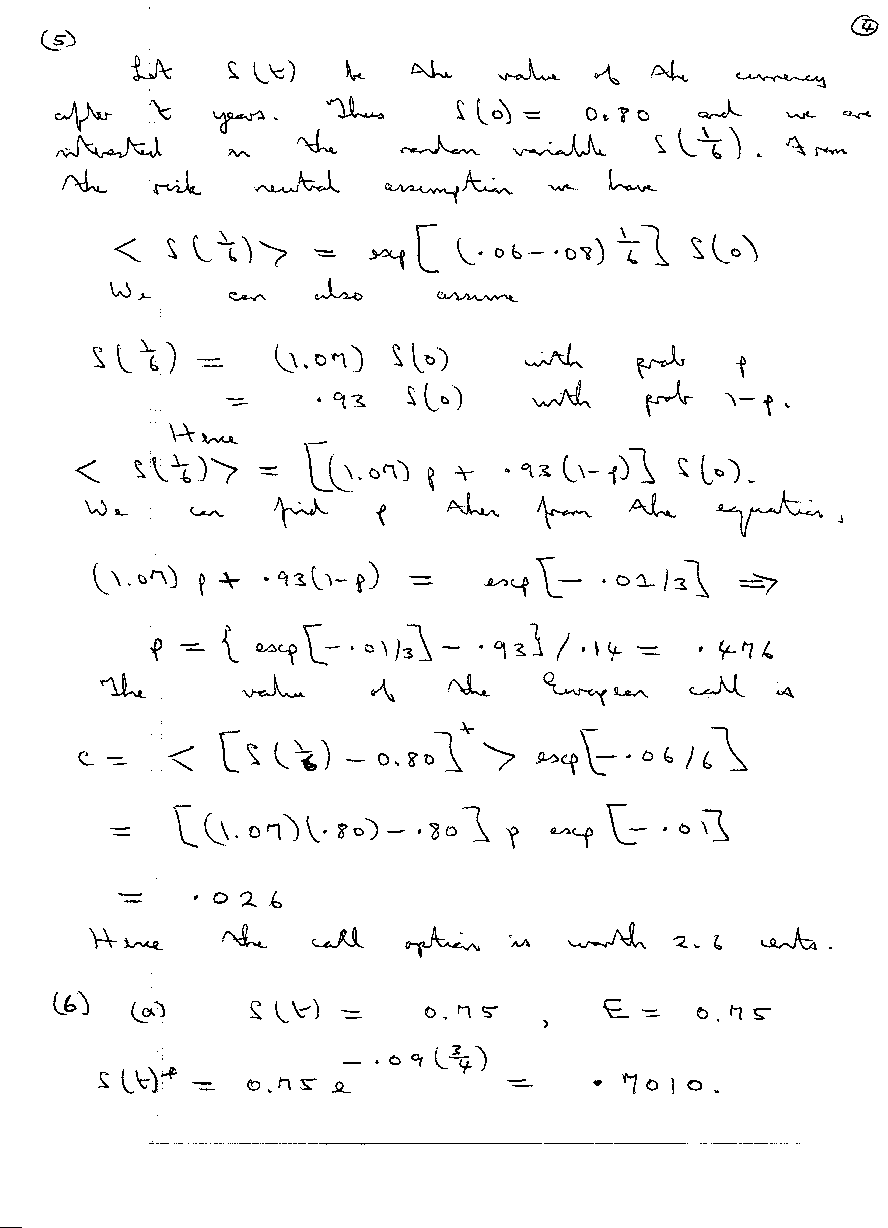 (5) (4)
Let S(t) be the value of the currency
after t years. Thus S(0) = 0.80 and we are
interested in the random variable S(1/6). From
the risk neutral assumption we have
< S(1/6) > = exp[ (.06-.08) 1/6 ] S(0)
We can also assume
S(1/6) = (1.07) S(0) with prob p
= .93 S(0) with prob 1-p.
Hence
< S(1/6) > = [(1.07) p + .93(1-p)] S(0).
We can find p then from the equation,
(1.07) p + .93(1-p) = exp[- .01/3] ⇒
p = { exp[-.01/3] - .93} / .14 = .476
The value of the European call is
c = < [S(1/6) - 0.80]⁺ > exp[-.06/6]
= [(1.07)(.80) - .80] p exp [- .01]
= .026
Hence the call option is worth 2.6 cents.
(6) (a) S(t) = 0.75 , E = 0.75
S(t)* = 0.75 e^{-.09(3/4)} = .7010.